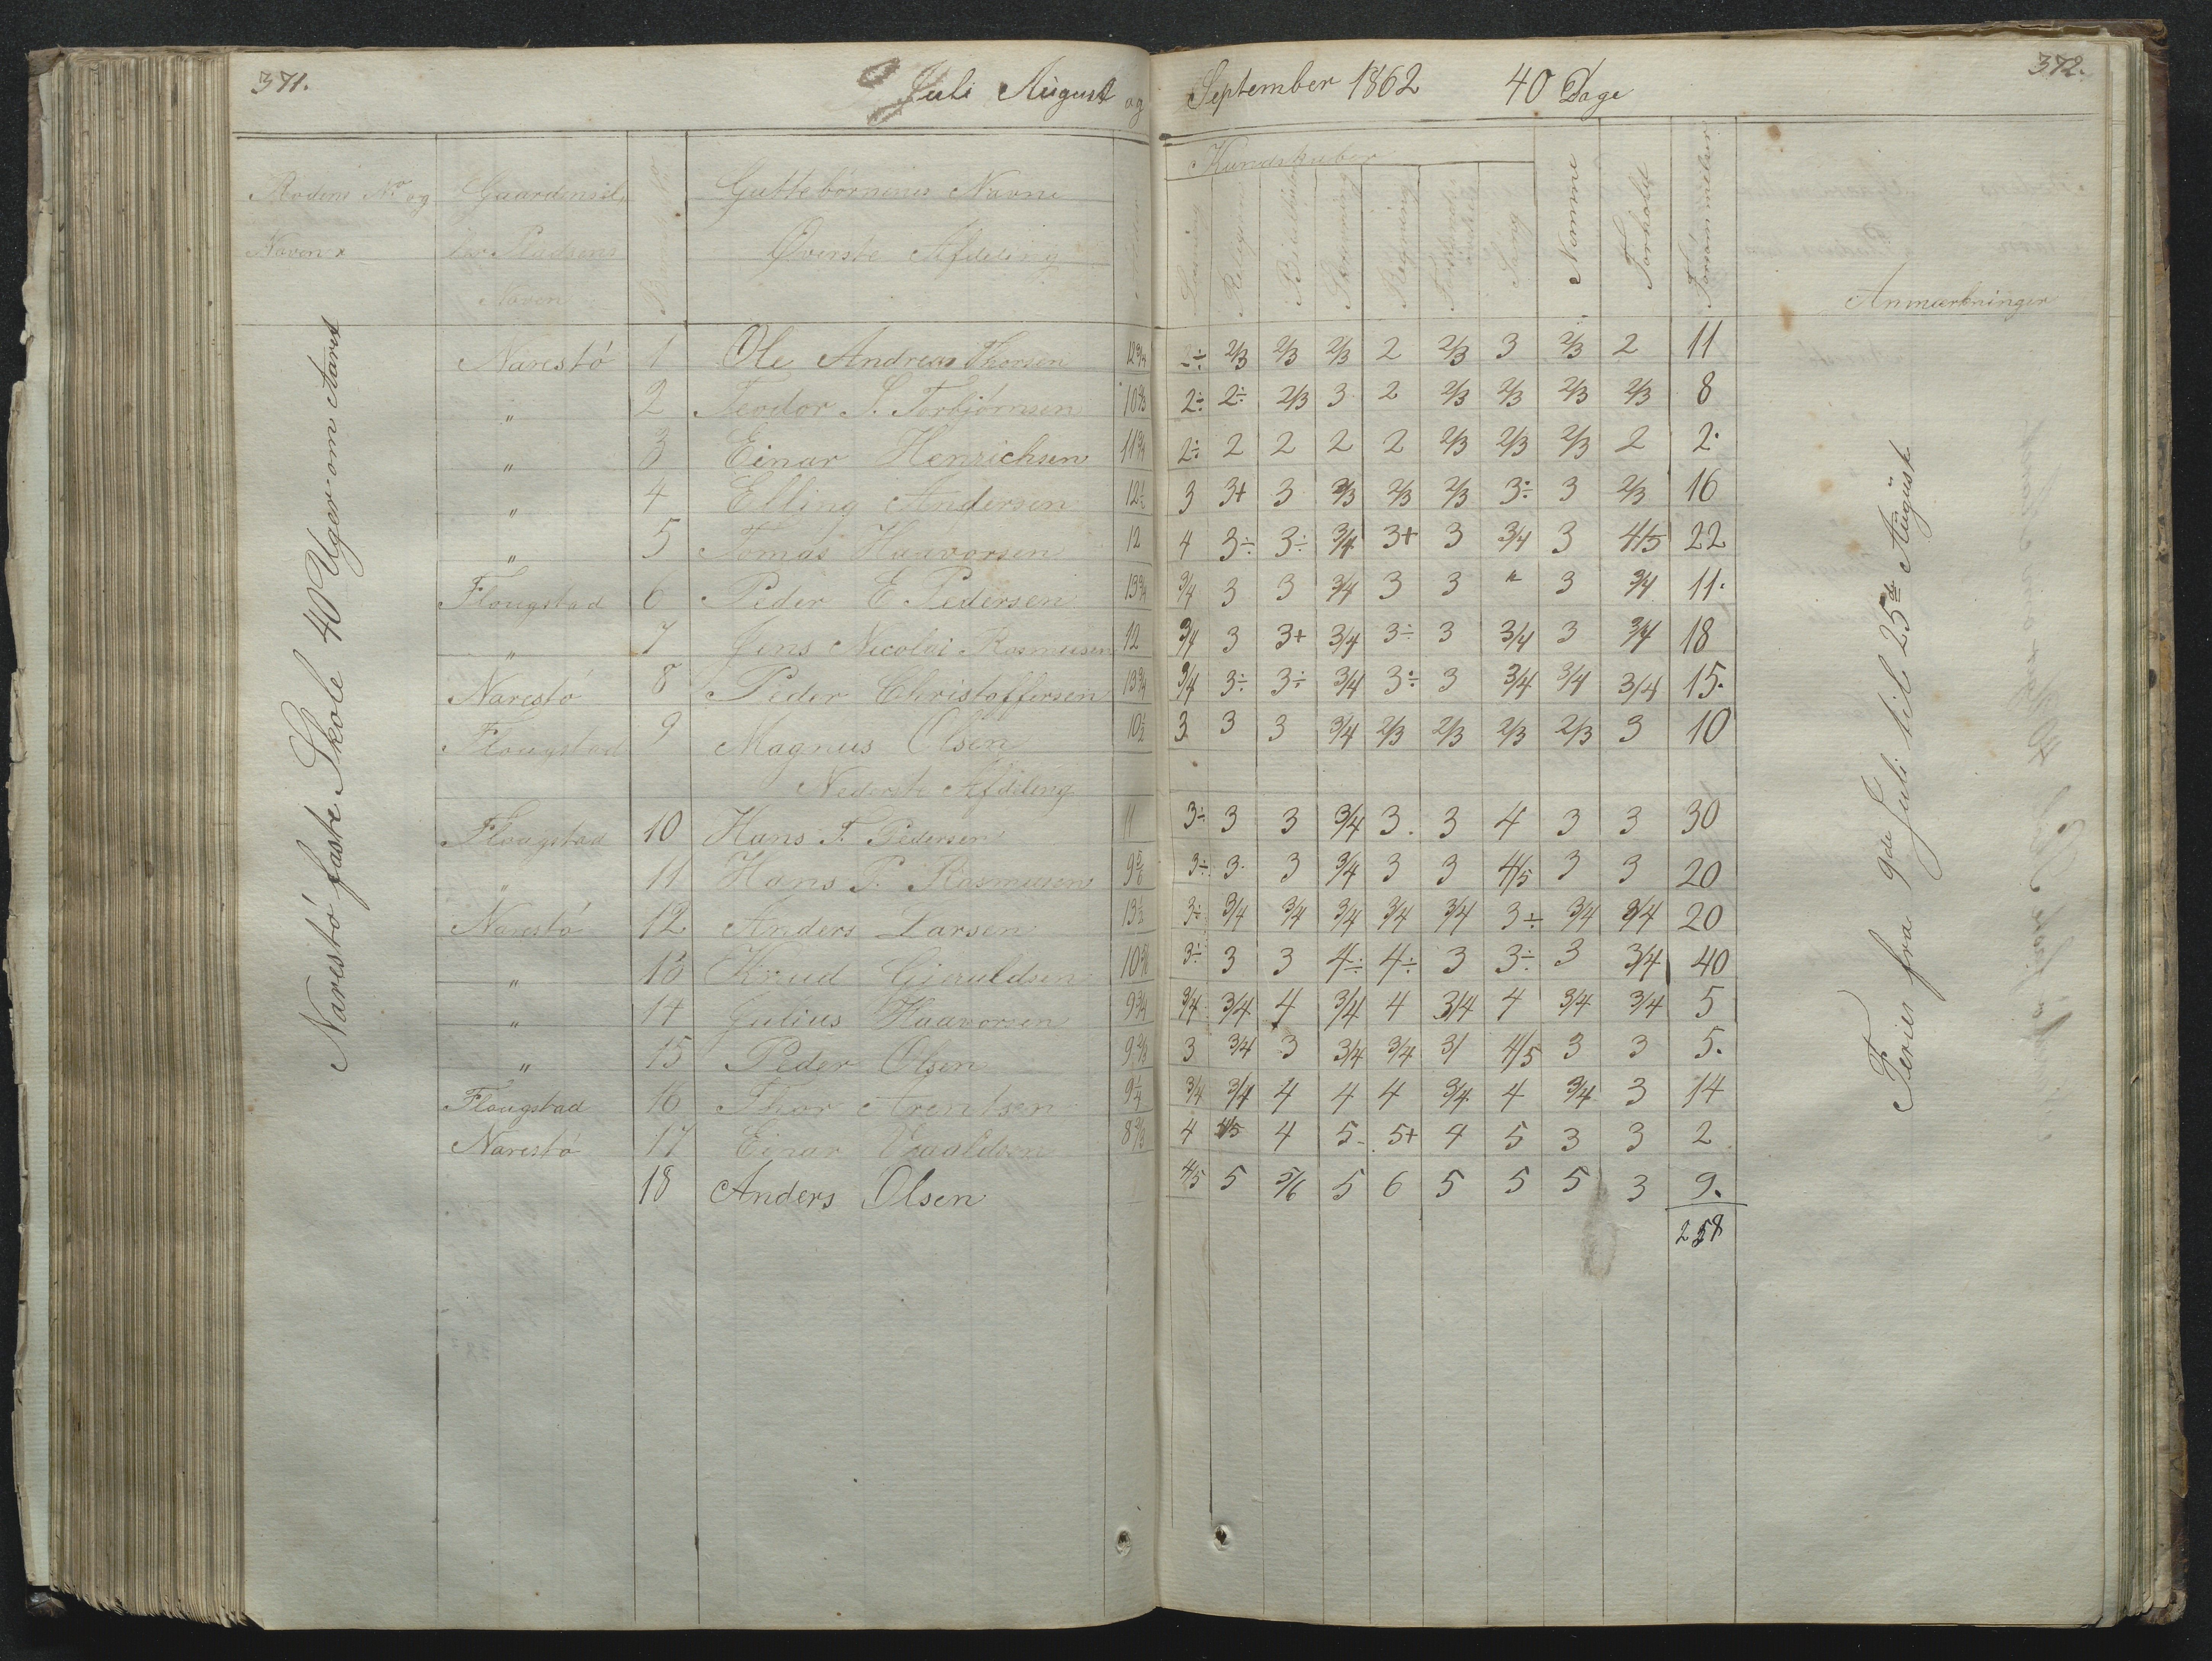 371.
Juli August og September 1862 40 Dage
372.
Rodens No og Navn
Gaardens el. Pladsens Navn
Guttebørnenes Navne
Øverste Afdeling
Kundskaber
Læsning
Religion
Skrivning
Regning
Sang
Nomine
Forhold
Forsømmelser
Anmærkninger
Narestø faste Skole 40 Uger om Aaret
Narestö 1 Ole Andreas Thorsen 12 3/4 2/3 2/3 2/3 2 2/3 3 2/3 2 11
" 2 Teodor S. Torbjörnsen 2÷ 2÷ 2/3 3 2 2/3 2/3 2/3 2/3 8
" 3 Einar Henrichsen 2÷ 2 2 2 2 2/3 2/3 2/3 2 2.
" 4 Elling Andersen 12½ 3 3+ 3 2/3 2/3 3÷ 3 2/3 16
" 5 Tomas Haavorsen 12 4 3÷ 3÷ 3/4 3+ 3 3/4 3 4/5 22
Flougstad 6 Peder E Pedersen 13 3/4 3/4 3 3 3/4 3 3 " 3 3/4 11.
" 7 Jens Nicolai Rasmusen 12 3/4 3 3+ 3/4 3÷ 3 3/4 3 3/4 18
Narestö 8 Peder Christoffersen 13 3/4 3/4 3÷ 3÷ 3/4 3÷ 3 3/4 3/4 3/4 15.
Flougstad 9 Magnus Olsen 10½ 3 3 3 3/4 2/3 2/3 2/3 2/3 3 10
Nederste Afdeling
Flougstad 10 Hans T. Pedersen 11 3÷ 3 3 3/4 3. 3 4 3 3 30
" 11 Hans P. Rasmusen 9 5/6 3÷ 3 3 3/4 3 3 4/5 3 3 20
Narestö 12 Anders Larsen 13½ 3÷ 3/4 3/4 3/4 3/4 3/4 3÷ 3/4 3/4 20
" 13 Knud Gjeruldsen 3÷ 3 3 4÷ 4÷ 3 3÷ 3 3/4 40
" 14 Julius Haavorsen 9 3/4 3/4 3/4 4 3/4 4 3/4 4 3/4 3/4 5
" 15 Peder Olsen 9 2/3 3 3/4 3 3/4 3/4 3/ 4/5 3 3 5.
Flougstad 16 Thor Arentsen 9¼ 3/4 3/4 4 4 4 3/4 4 3/4 3 14
Narestö 17 Einar 8 2/3 4 4/5 4 5- 5+ 4 5 3 3 2
18 Anders Olsen 4/5 5 5/6 5 6 5 5 5 3 9.
258
Ferier fra 9de Juli til 25de August